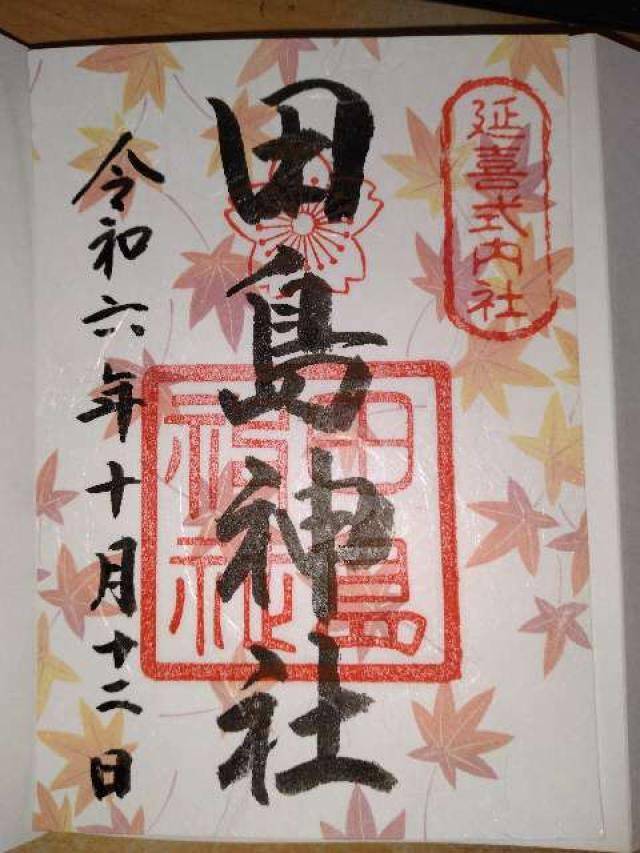 延喜式内社
田島神社
田島神社
令和六年十月十二日